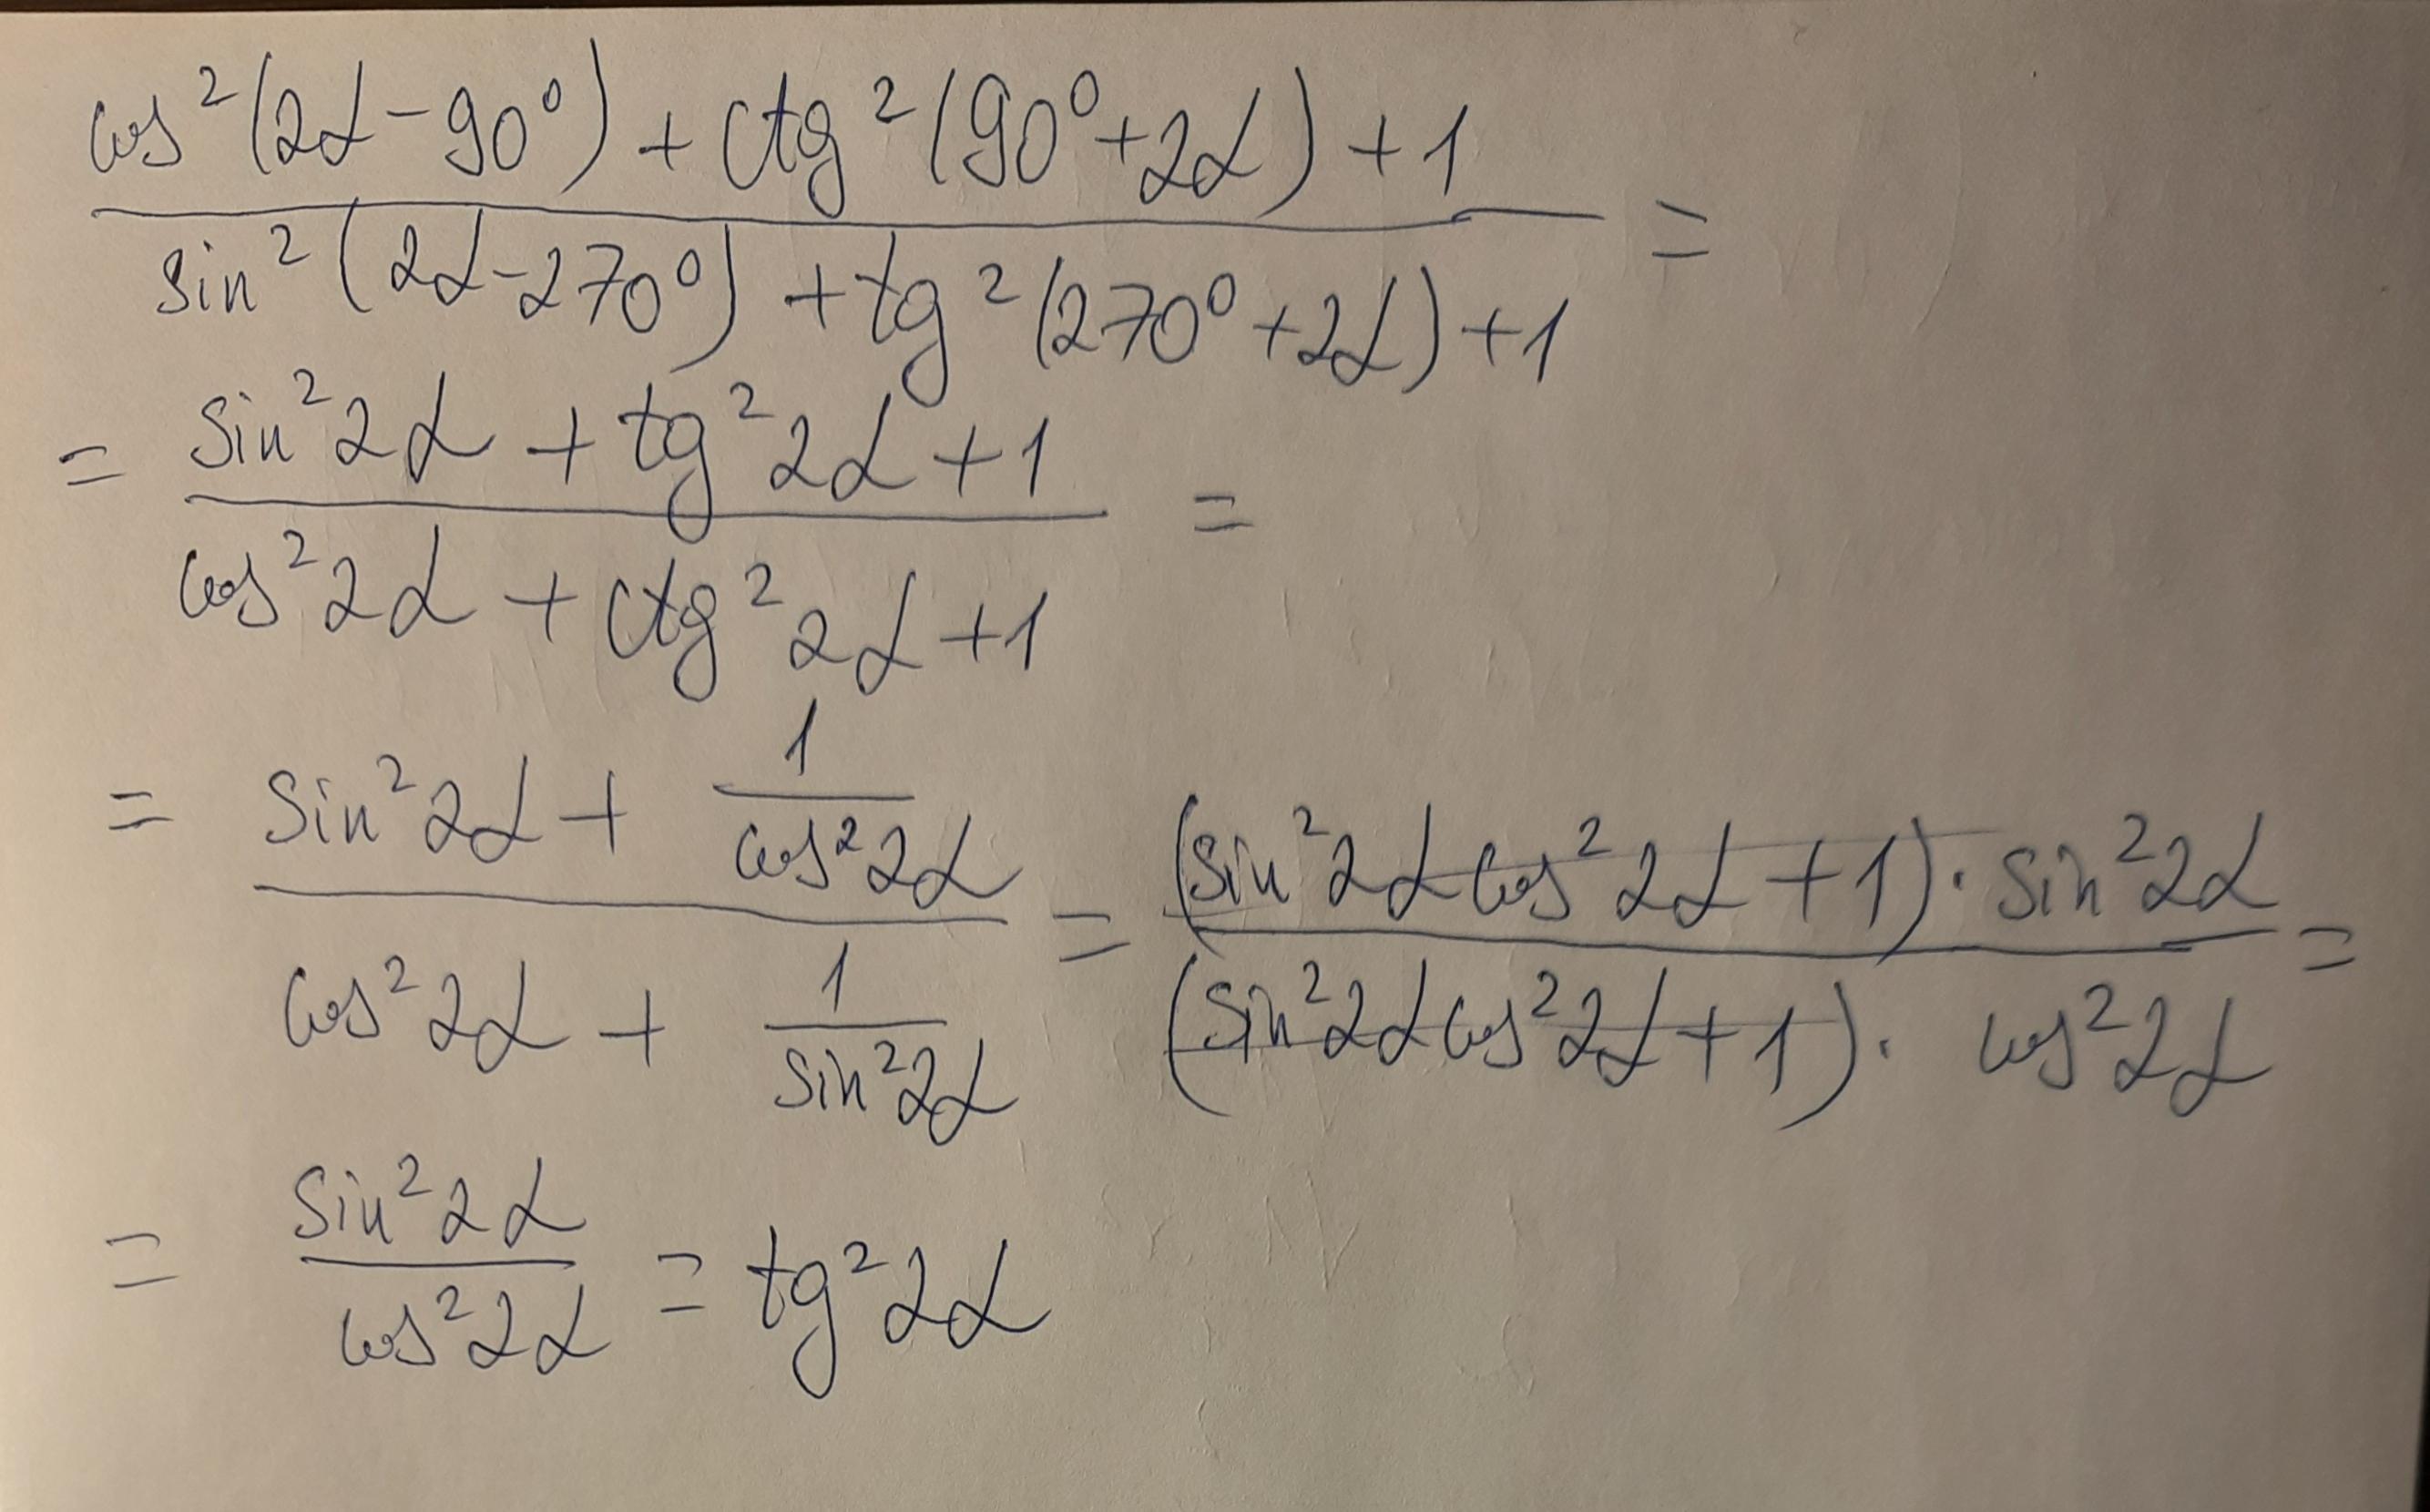 cos²(2α-90⁰) + ctg²(90⁰+2α) + 1 / sin²(2α-270⁰) + tg²(270⁰+2α) + 1 =
= sin²2α + tg²2α + 1 / cos²2α + ctg²2α + 1 =
= sin²2α + 1/cos²2α / cos²2α + 1/sin²2α = (sin²2α cos²2α + 1) · sin²2α / (sin²2α cos²2α + 1) · cos²2α =
= sin²2α / cos²2α = tg²2α